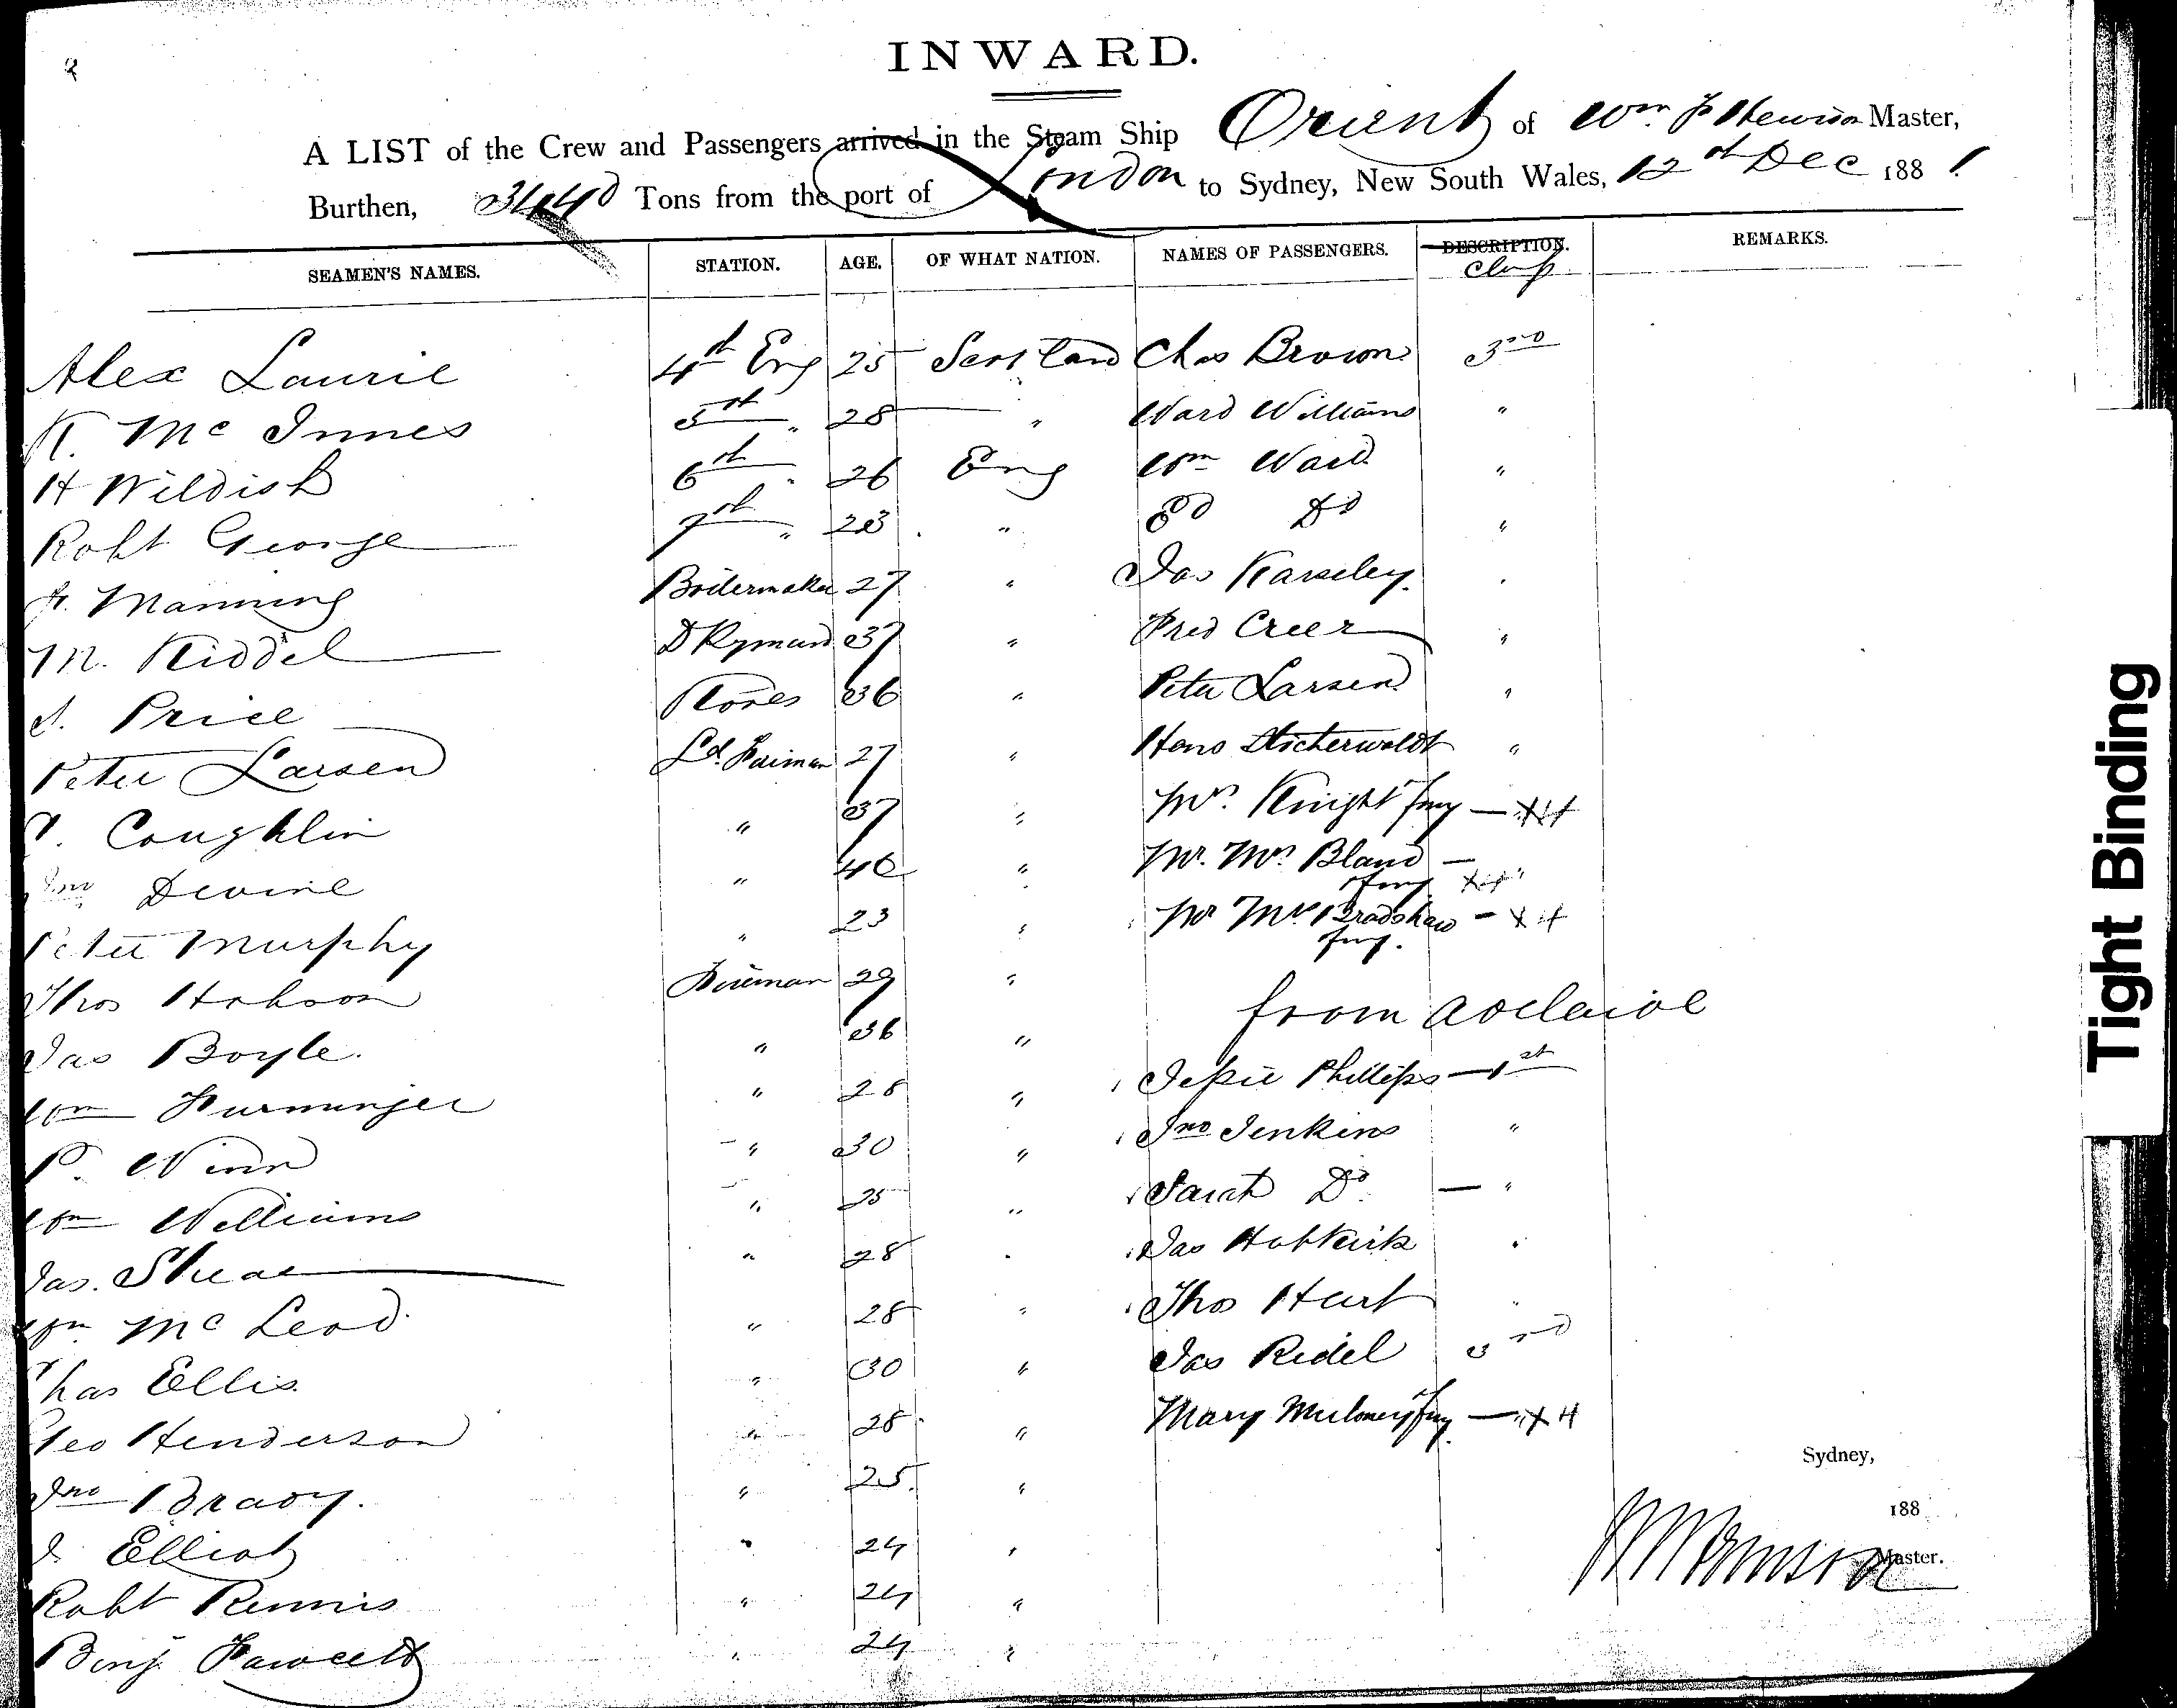 INWARD.
A LIST of the Crew and Passengers arrived in the Steam Ship Orient of Wm F Hewison Master,
Burthen, Tons from the port of London to Sydney, New South Wales, 12th Dec 1881.
SEAMEN'S NAMES. STATION. AGE. OF WHAT NATION. NAMES OF PASSENGERS. DESCRIPTION. REMARKS.
Class
Alex Laurie 4th Eng 25 Scotland Chas Brown 3rd
K. Mc Innes 5th " 28 " Ward Williams "
H Wildish 6th " 26 Eng Wm Ward "
Robt George 7th " 23 " Do "
Manning Boilermaker 27 " Jas Karseley "
M. Riddel 37 " Fred Creer "
Price Stores 36 " Peter Larsen "
Peter Larsen Ld. Fireman 27 " Hans "
Coughlin " 37 " Mrs. Knight fmy
Jno Devine " 40 " Mr. Mrs Bland
fmy
Peter Murphy " 23 " Mr Mrs Bradshaw
fmy.
Thos Hobson Fireman 29 "
from Adelaide
Jas Boyle. " 36 "
Wm Furminger " 28 " Jessie Phillips 1st
P. Winn " 30 " Jno Jenkins "
Wm Williams " 25 " Sarah Do. "
Jas. Shea " 28 " Jas Hobkirk "
Wm Mc Leod. " 28 " Thos Hart "
Chas Ellis. " 30 " Jas Ridel 3rd
Geo Henderson " 28 " Mary Muloney fmy
Jno Brady. " 25 "
J. Elliot " 24 "
Robt Rennis " 24 "
Benj. Fawcett " 24 "
Sydney,
188
Master.
Tight Binding